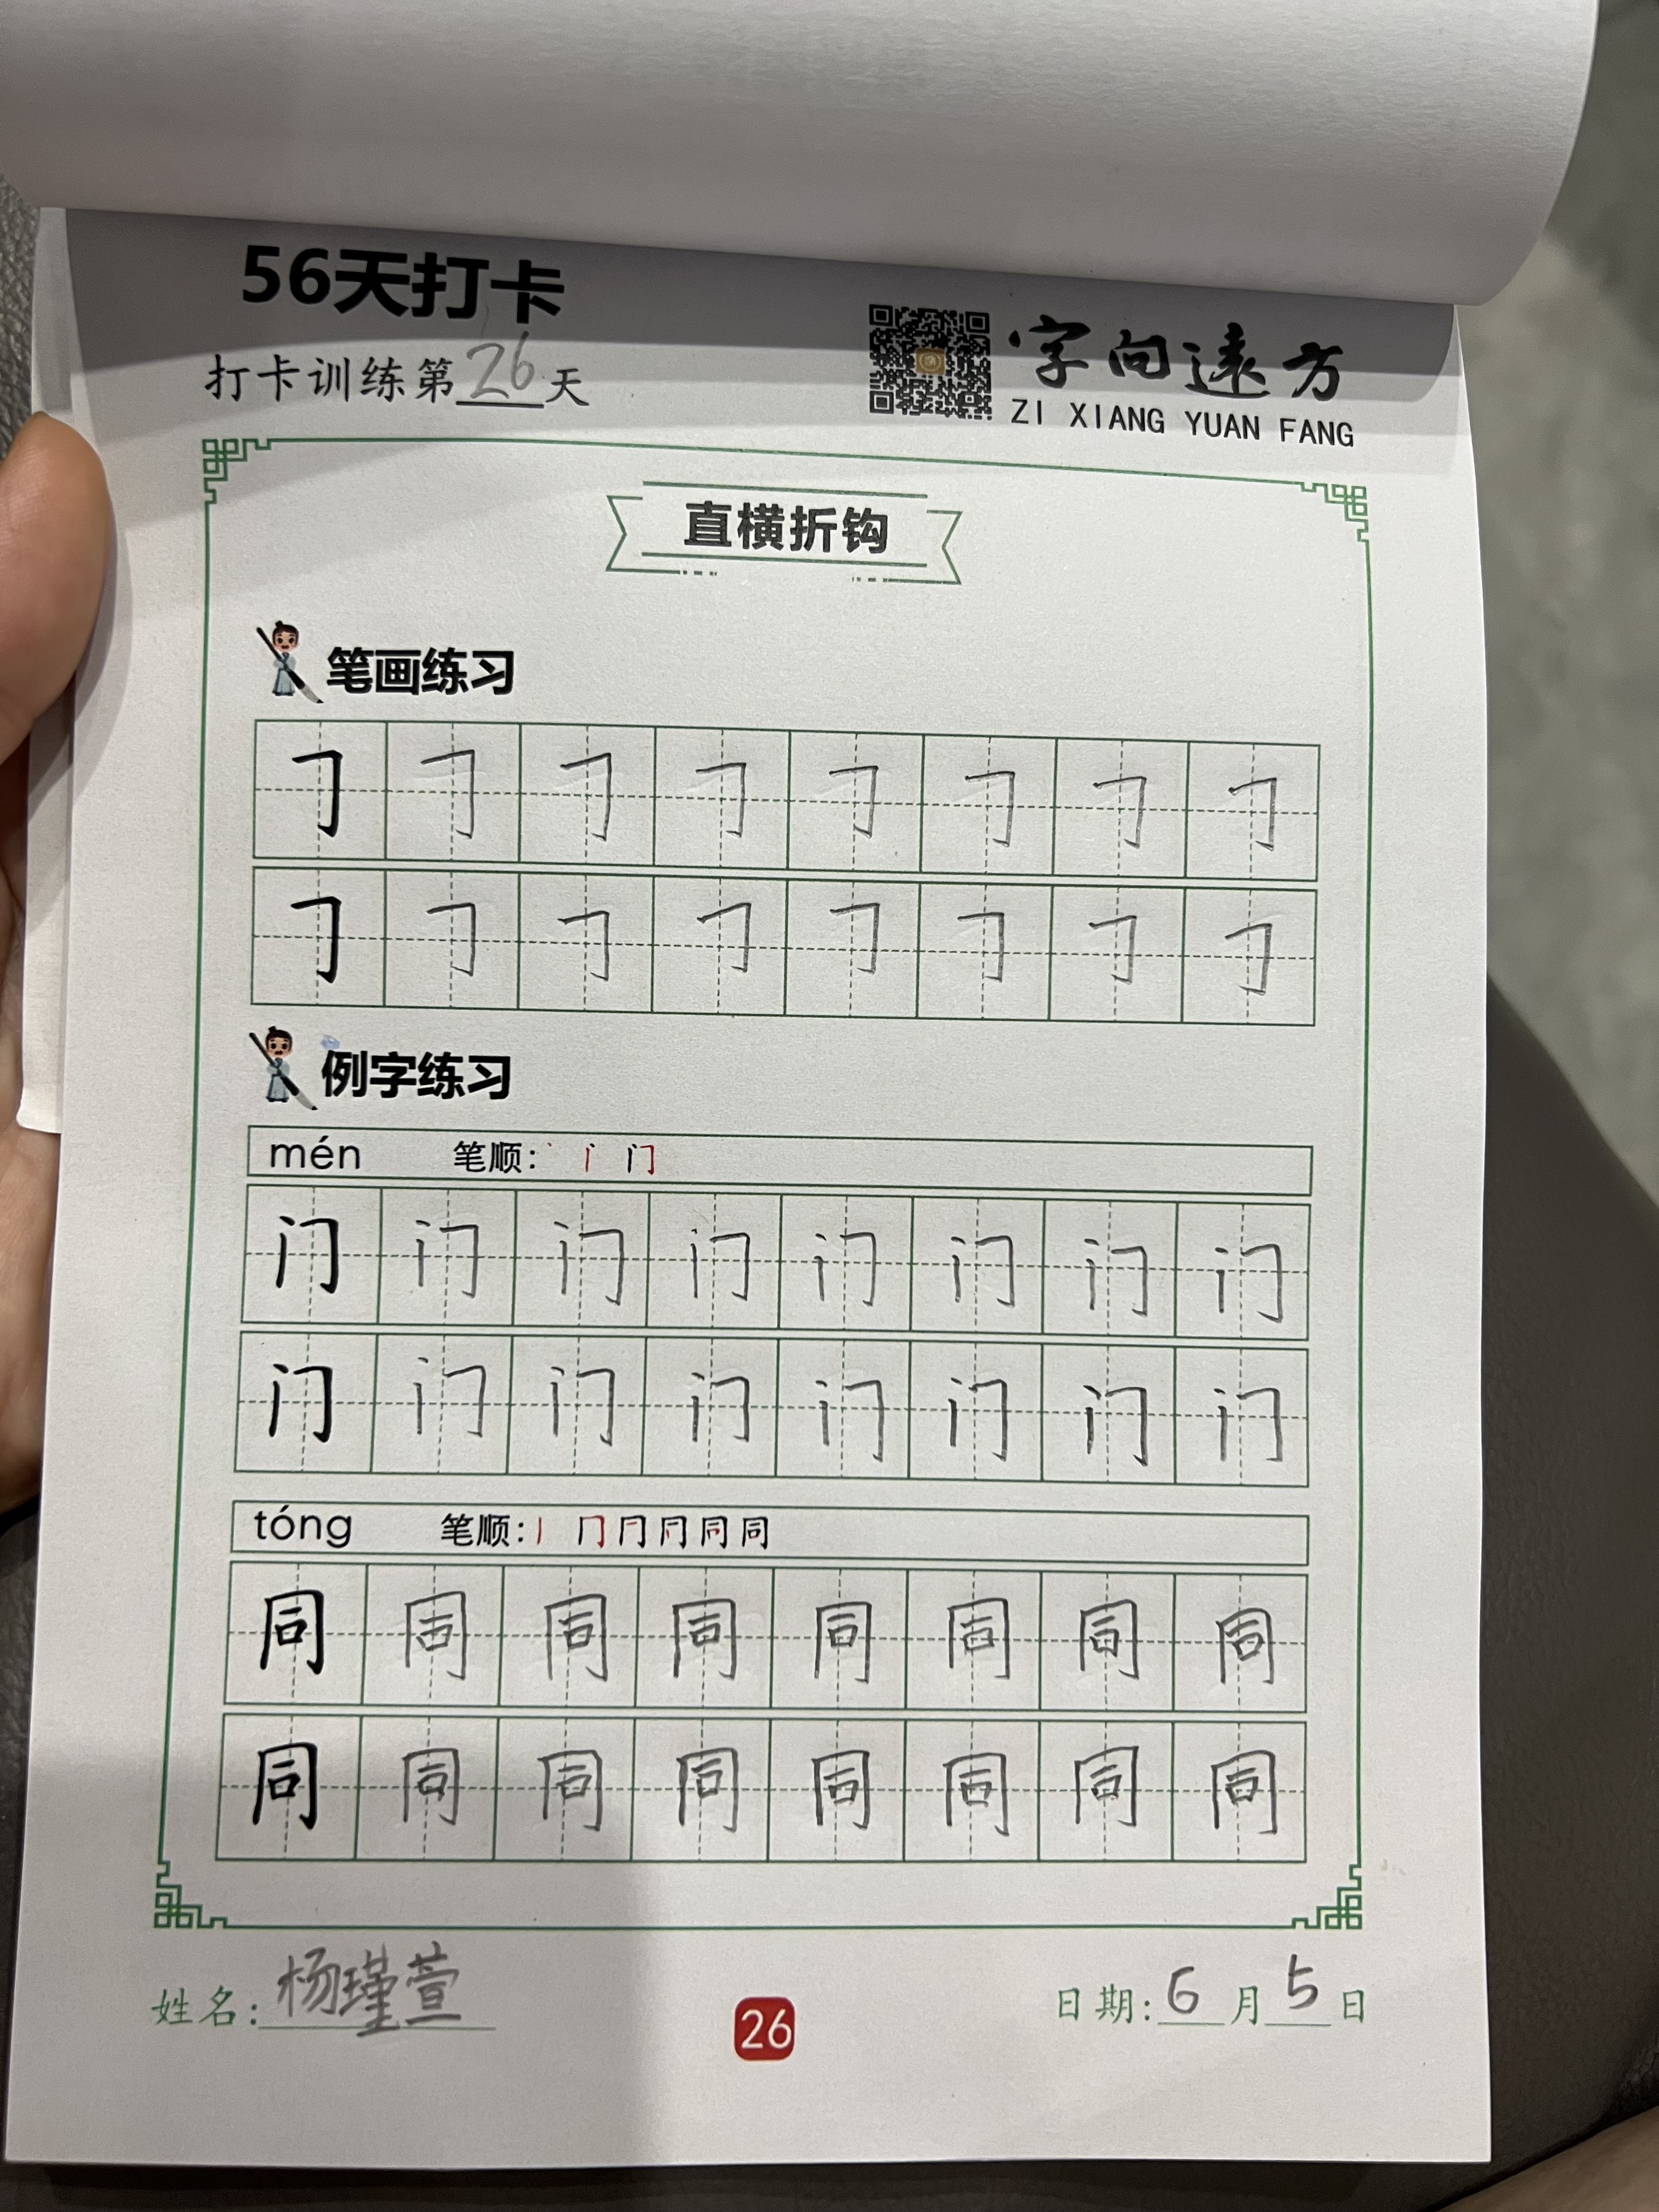 56天打卡
打卡训练第26天
字向远方
ZI XIANG YUAN FANG
直横折钩
笔画练习
𠃌 𠃌 𠃌 𠃌 𠃌 𠃌 𠃌 𠃌
𠃌 𠃌 𠃌 𠃌 𠃌 𠃌 𠃌 𠃌
例字练习
mén 笔顺: 丶 门
门 门 门 门 门 门 门 门
门 门 门 门 门 门 门 门
tóng 笔顺: 丨 冂 同
同 同 同 同 同 同 同 同
同 同 同 同 同 同 同 同
姓名: 杨瑾萱
26
日期: 6月5日